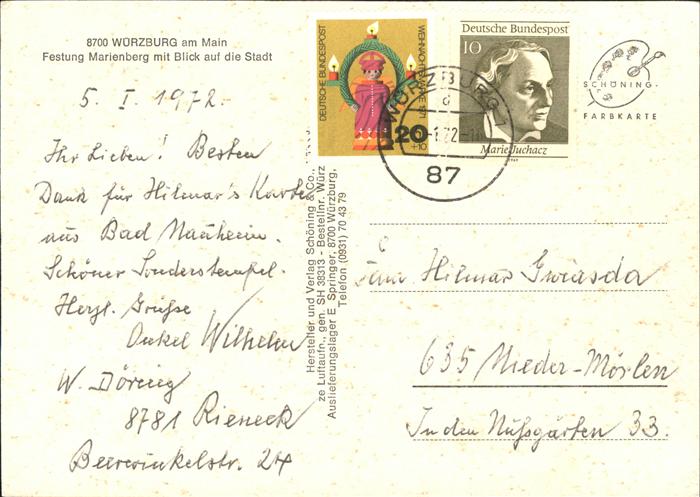 8700 WÜRZBURG am Main
Festung Marienberg mit Blick auf die Stadt
5. I. 1972.
Ihr Lieben! Besten
Dank für Hilmar's Karten
aus Bad Nauheim.
Schöner Sonderstempel.
Herzl. Grüße
Onkel Wilhelm
W. Döring
8781 Rieneck
Beerewinkelstr. 24
Hersteller und Verlag Schöning & Co.,
ze Luftaufn., gen. SH 38313 - Bestellnr. Würz
Auslieferungslager E Springer, 8700 Würzburg,
Telefon (0931) 70 43 79
DEUTSCHE BUNDESPOST
WEIHNACHTSMARKE 1971
20
+10
Deutsche Bundespost
10
Marie Juchacz
WÜRZBURG 1
d
-1.72-1
87
SCHÖNING-
FARBKARTE
Hilmar Gwiasda
635 Nieder-Mörlen
In den Nußgärten 33.